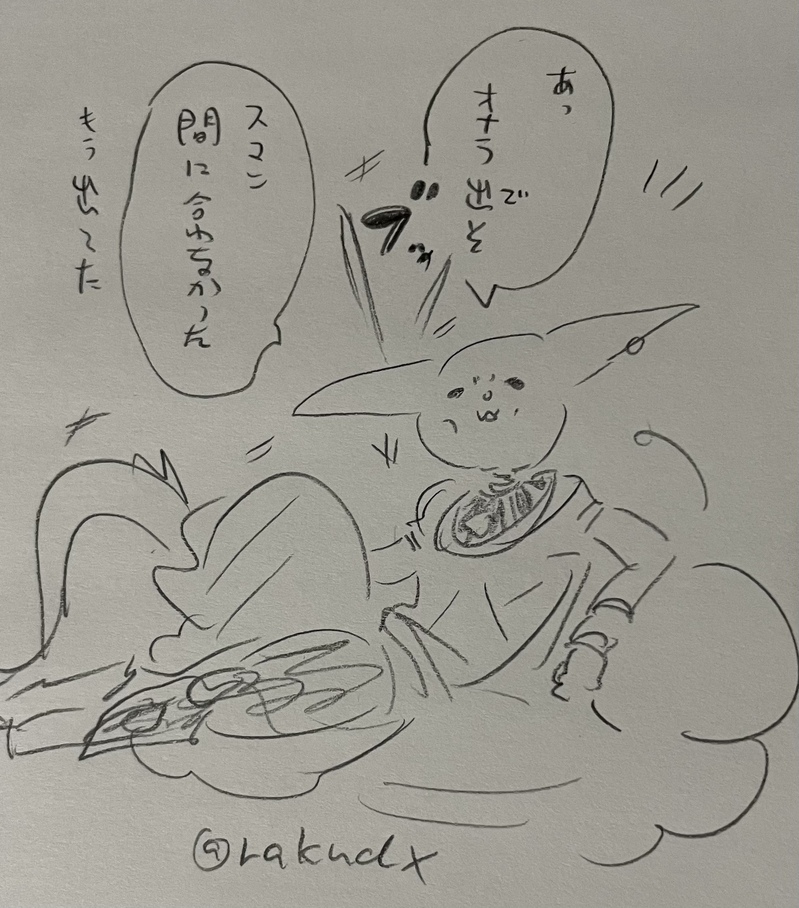 あっ
オナラ出そ
で
ブッ
スマン
間に合わなかった
もう出てた
@rakudx